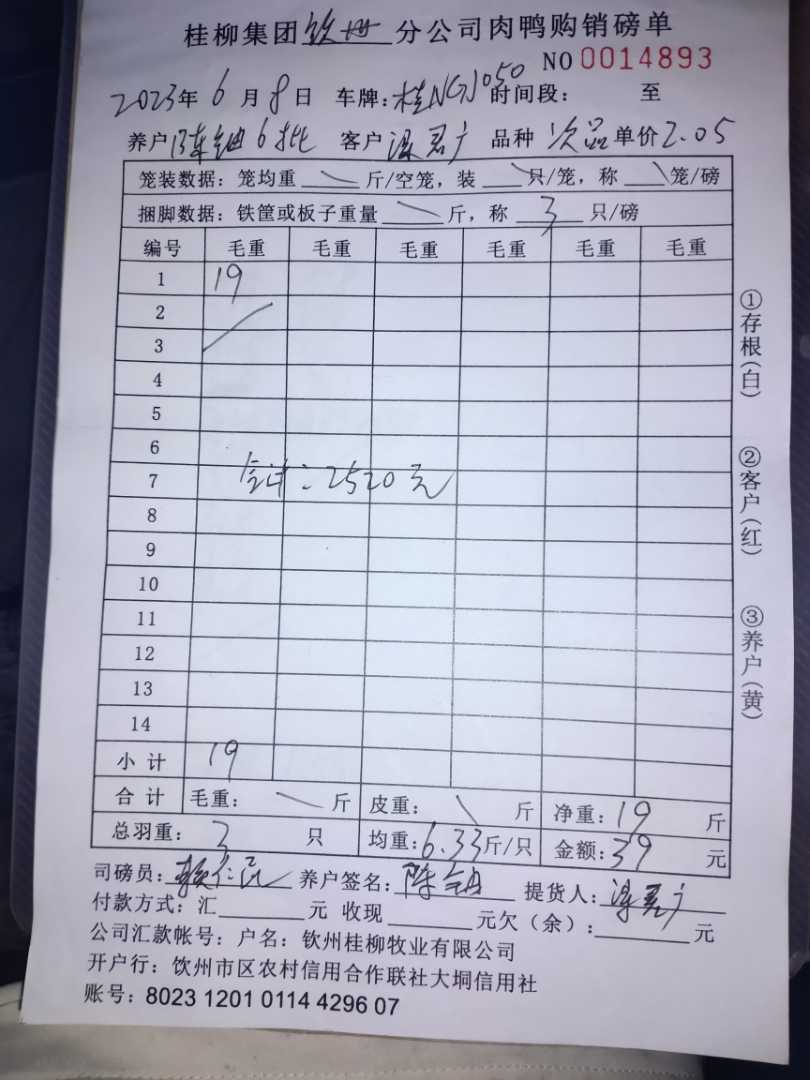 桂柳集团钦州分公司肉鸭购销磅单
NO 0014893
2023年6月8日 车牌:桂NGJ050 时间段: 至
养户 陈 6批 客户 广 品种 次品 单价2.05
笼装数据:笼均重 斤/空笼,装 只/笼,称 笼/磅
捆脚数据:铁筐或板子重量 斤,称 3 只/磅
编号 毛重 毛重 毛重 毛重 毛重 毛重
1 19
2
3
4
5
6
7 合计:2520元
8
9
10
11
12
13
14
小计 19
合计 毛重: 斤 皮重: 斤 净重:19 斤
总羽重: 3 只 均重:6.33斤/只 金额:39 元
司磅员: 养户签名:陈 提货人: 广
付款方式:汇 元 收现 元欠(余): 元
公司汇款帐号:户名:钦州桂柳牧业有限公司
开户行:饮州市区农村信用合作联社大垌信用社
账号:8023 1201 0114 4296 07
①存根(白)
②客户(红)
③养户(黄)